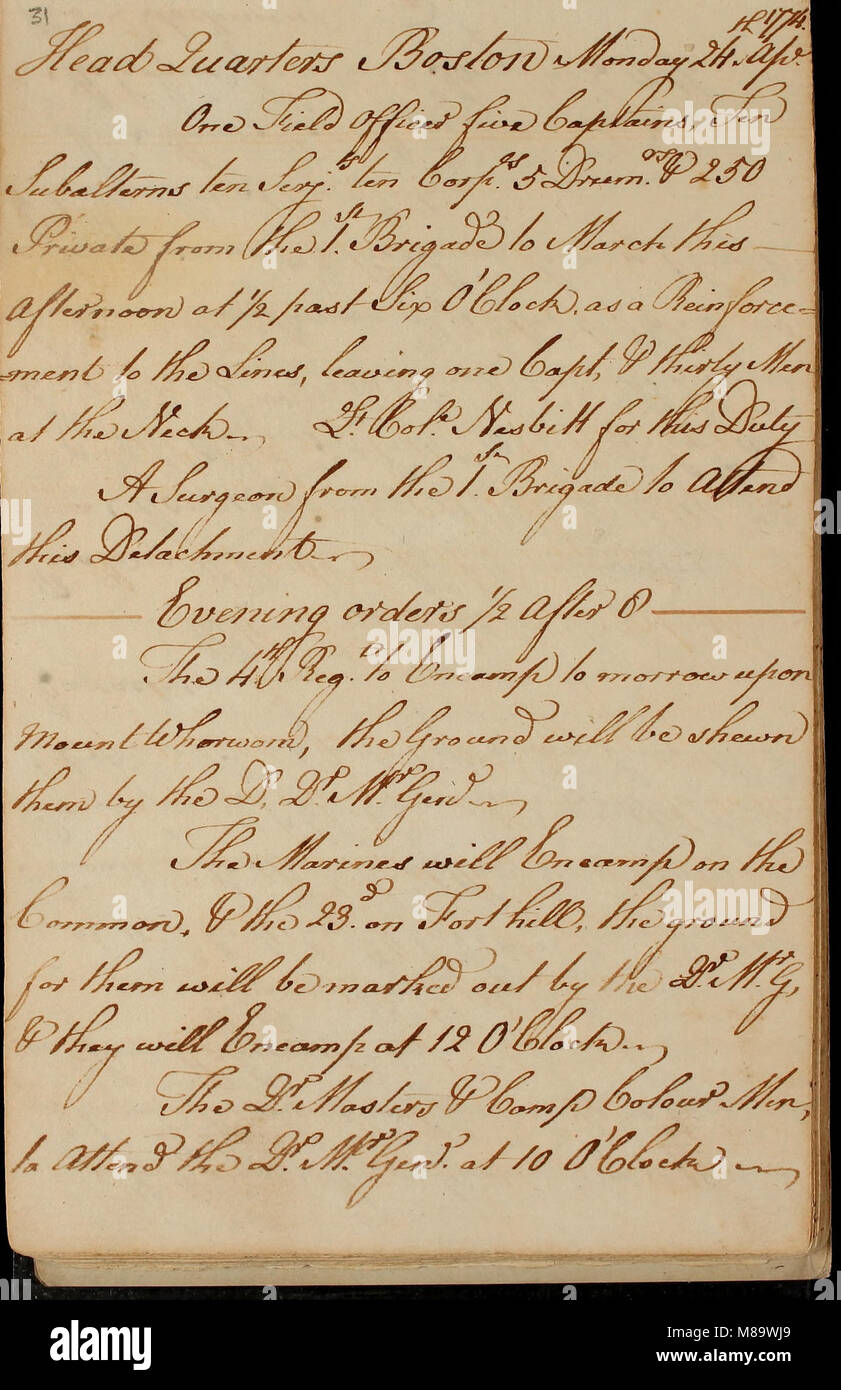 31
Head Quarters Boston Monday 24th Apr. 1774.
One Field officer five Captains, Ten
Subalterns ten Serj.ts ten Corp.ls 5 Drum.rs & 250
Private from the 1.st Brigade to March this
afternoon at 1/2 past Six O'Clock. as a Reinforce=
=ment to the Lines, leaving one Capt, & thirty Men
at the Neck Lt. Col. Nesbitt for this Duty
A Surgeon from the 1.st Brigade to Attend
this Detachment
Evening orders 1/2 after 8
The 4th Reg.t to Encamp to morrow upon
Mount Whorwom, the Ground will be shewn
them by the D. Qr. Mr. Genl.
The Marines will Encamp on the
Common, & the 23.d on Fort hill, the ground
for them will be marked out by the Qr. Mr. G,
& they will Encamp at 12 O'Clock
The Qr. Masters & Camp Colour Men,
to Attend the Qr. Mr. Genl. at 10 O'Clock
alamy
a
Image ID: M89WJ9
www.alamy.com